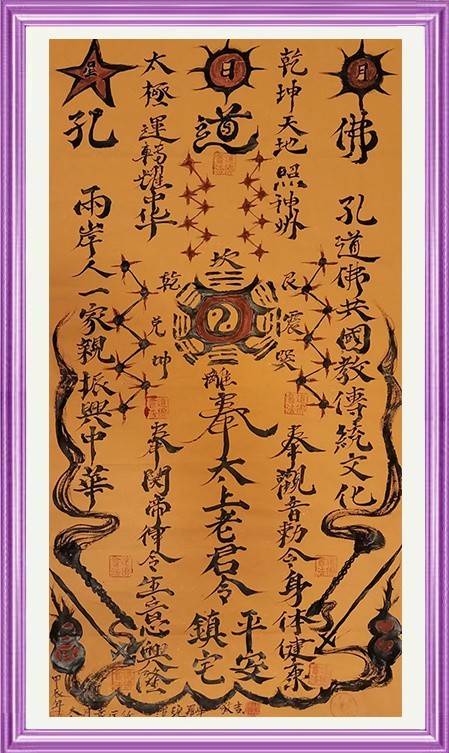 月
佛
孔道佛共國教傳統文化
乾坤天地照神州
艮震巽
奉觀音勅令身体健康
日
道
坎
離
奉太上老君令
平安
鎮宅
太極運轉耀中华
乾兌坤
奉関帝律令生意興隆
星
孔
兩岸人一家親振興中華
甲辰年